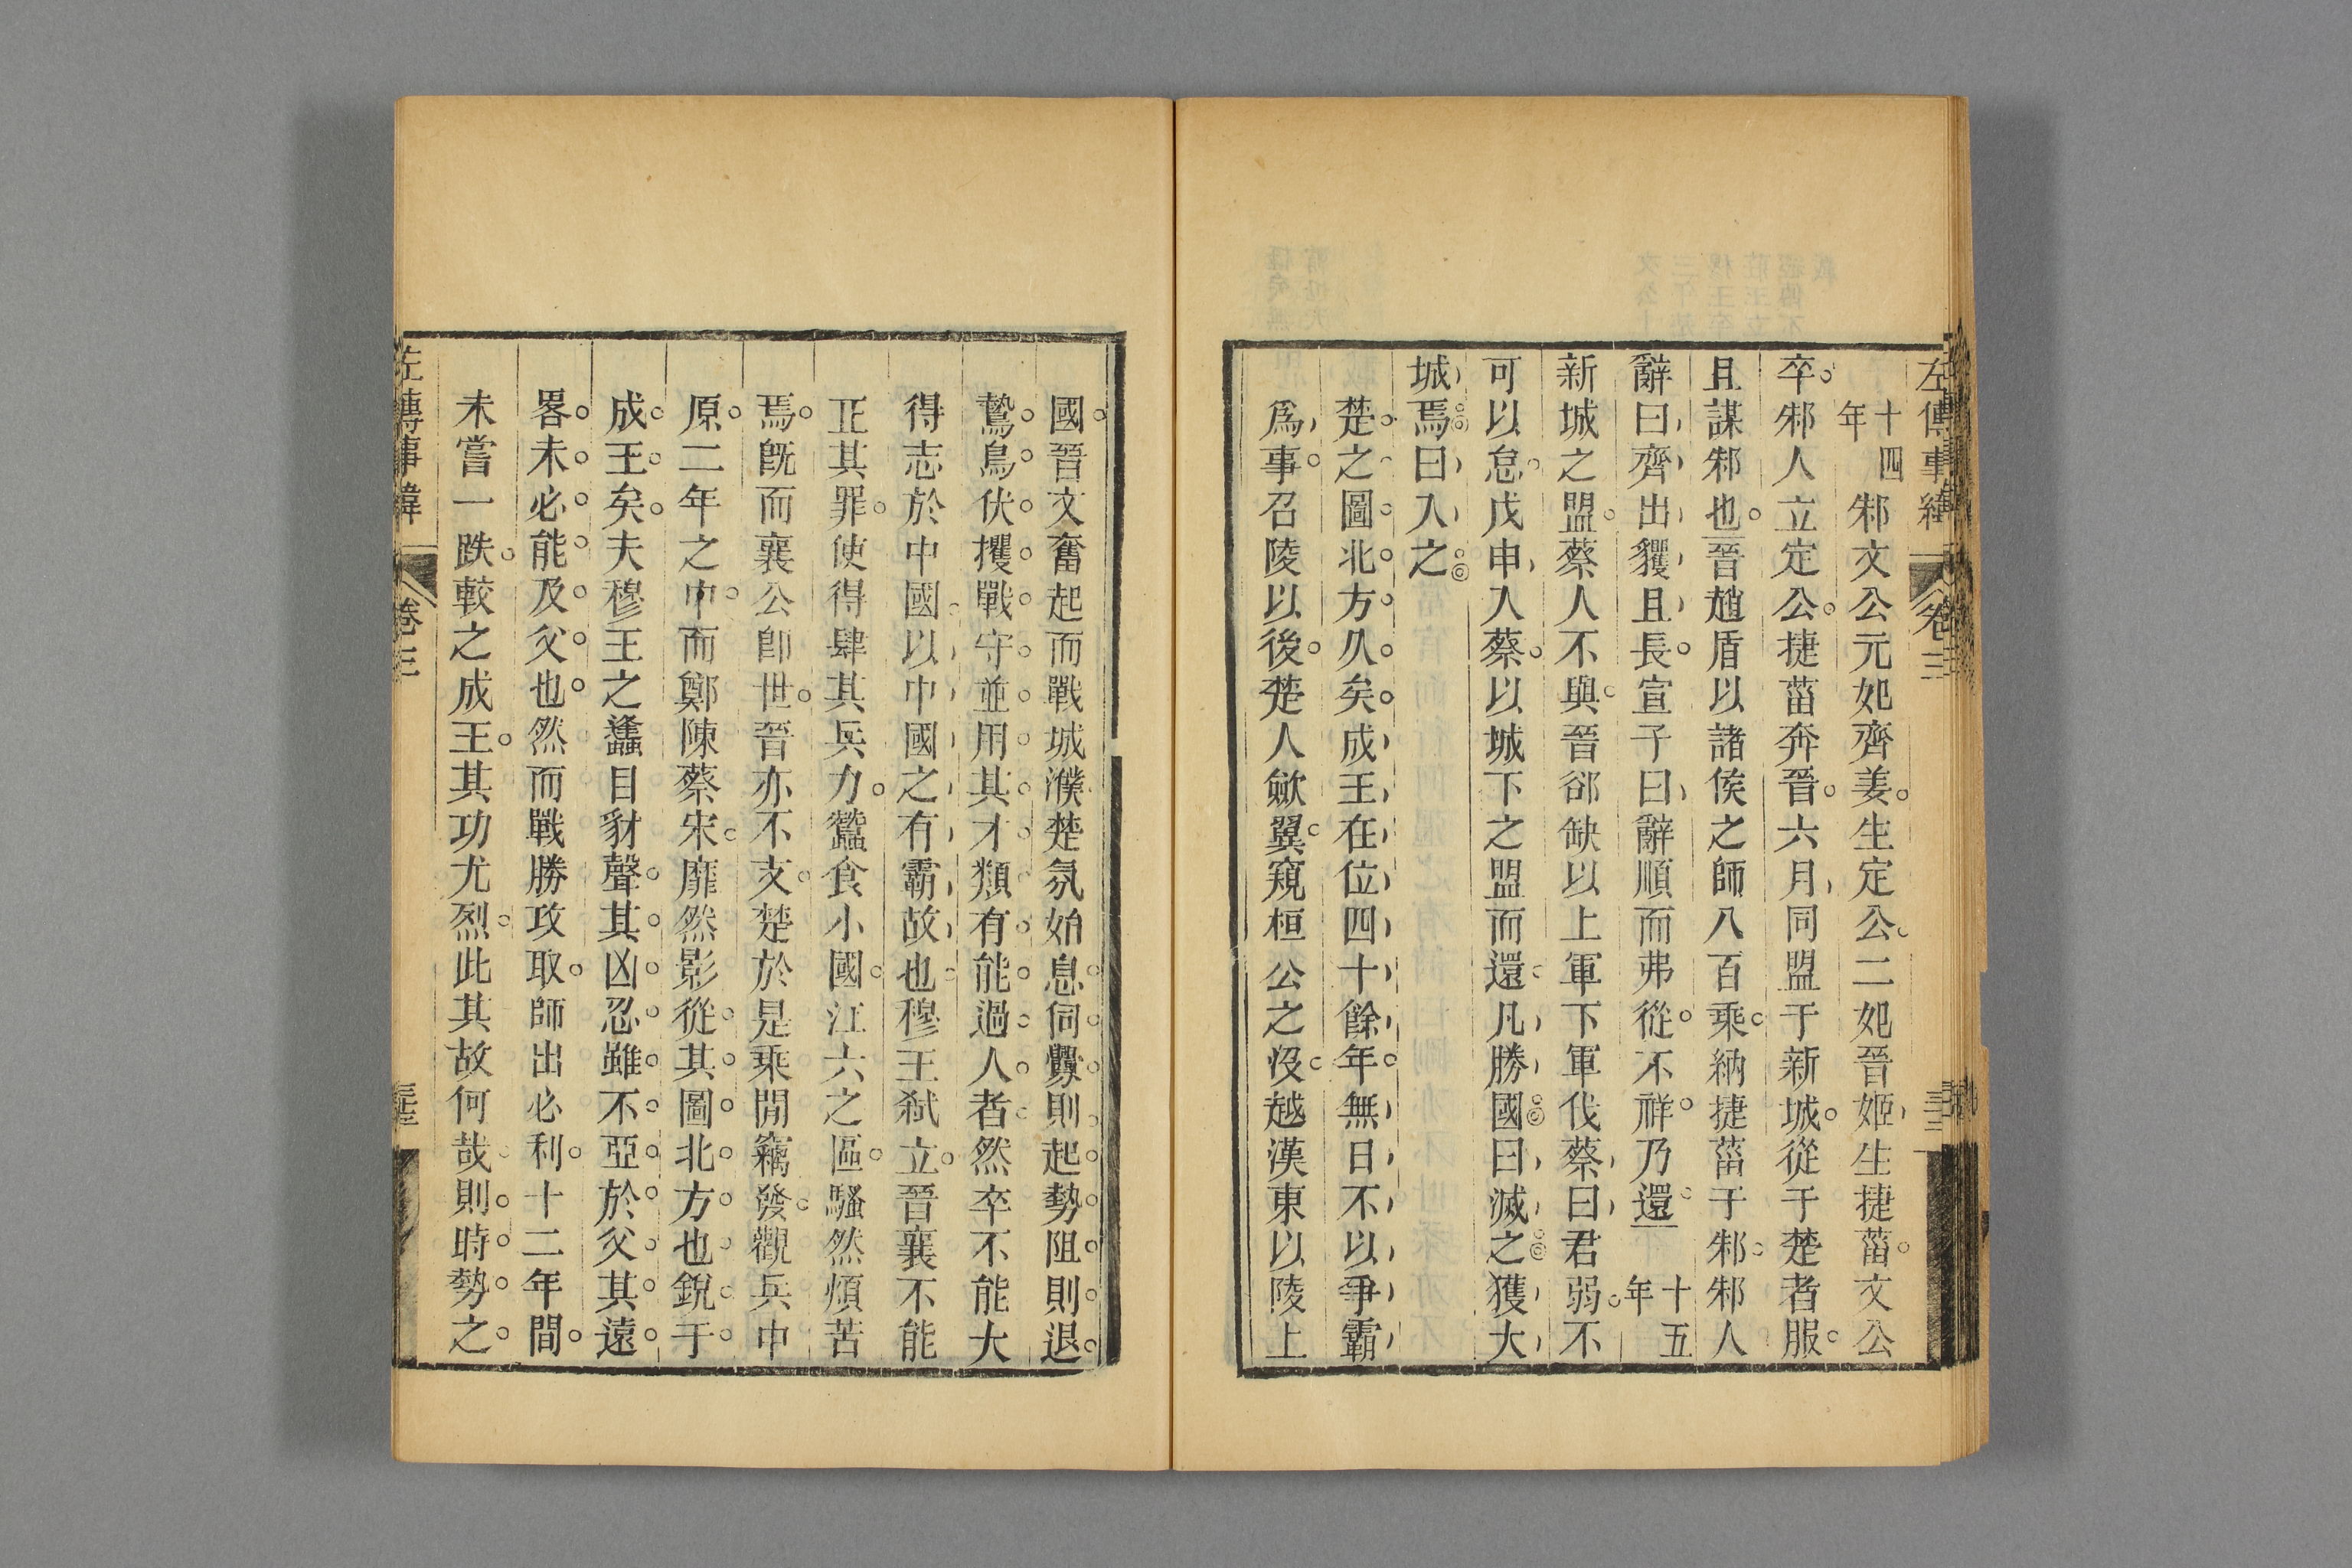 左傳事緯 卷三
十四年 邾文公元妃齊姜生定公二妃晉姬生捷菑文公
卒邾人立定公捷菑奔晉六月同盟于新城從于楚者服
且謀邾也晉趙盾以諸侯之師八百乘納捷菑于邾邾人
辭曰齊出貜且長宣子曰辭順而弗從不祥乃還 十五年
新城之盟蔡人不與晉郤缺以上軍下軍伐蔡曰君弱不
可以怠戊申入蔡以城下之盟而還凡勝國曰滅之獲大
城焉曰入之
楚之圖北方久矣成王在位四十餘年無日不以爭霸
爲事召陵以後楚人歛翼窺桓公之沒越漢東以陵上
國晉文奮起而戰城濮楚氛始息伺釁則起勢阻則退
鷙鳥伏攫戰守並用其才類有能過人者然卒不能大
得志於中國以中國之有霸故也穆王弑立晉襄不能
正其罪使得肆其兵力蠶食小國江六之區騷然煩苦
焉旣而襄公卽世晉亦不支楚於是乘閒竊發觀兵中
原二年之中而鄭陳蔡宋靡然影從其圖北方也銳于
成王矣夫穆王之蠭目豺聲其凶忍雖不亞於父其遠
畧未必能及父也然而戰勝攻取師出必利十二年間
未嘗一跌較之成王其功尤烈此其故何哉則時勢之
左傳事緯 卷三